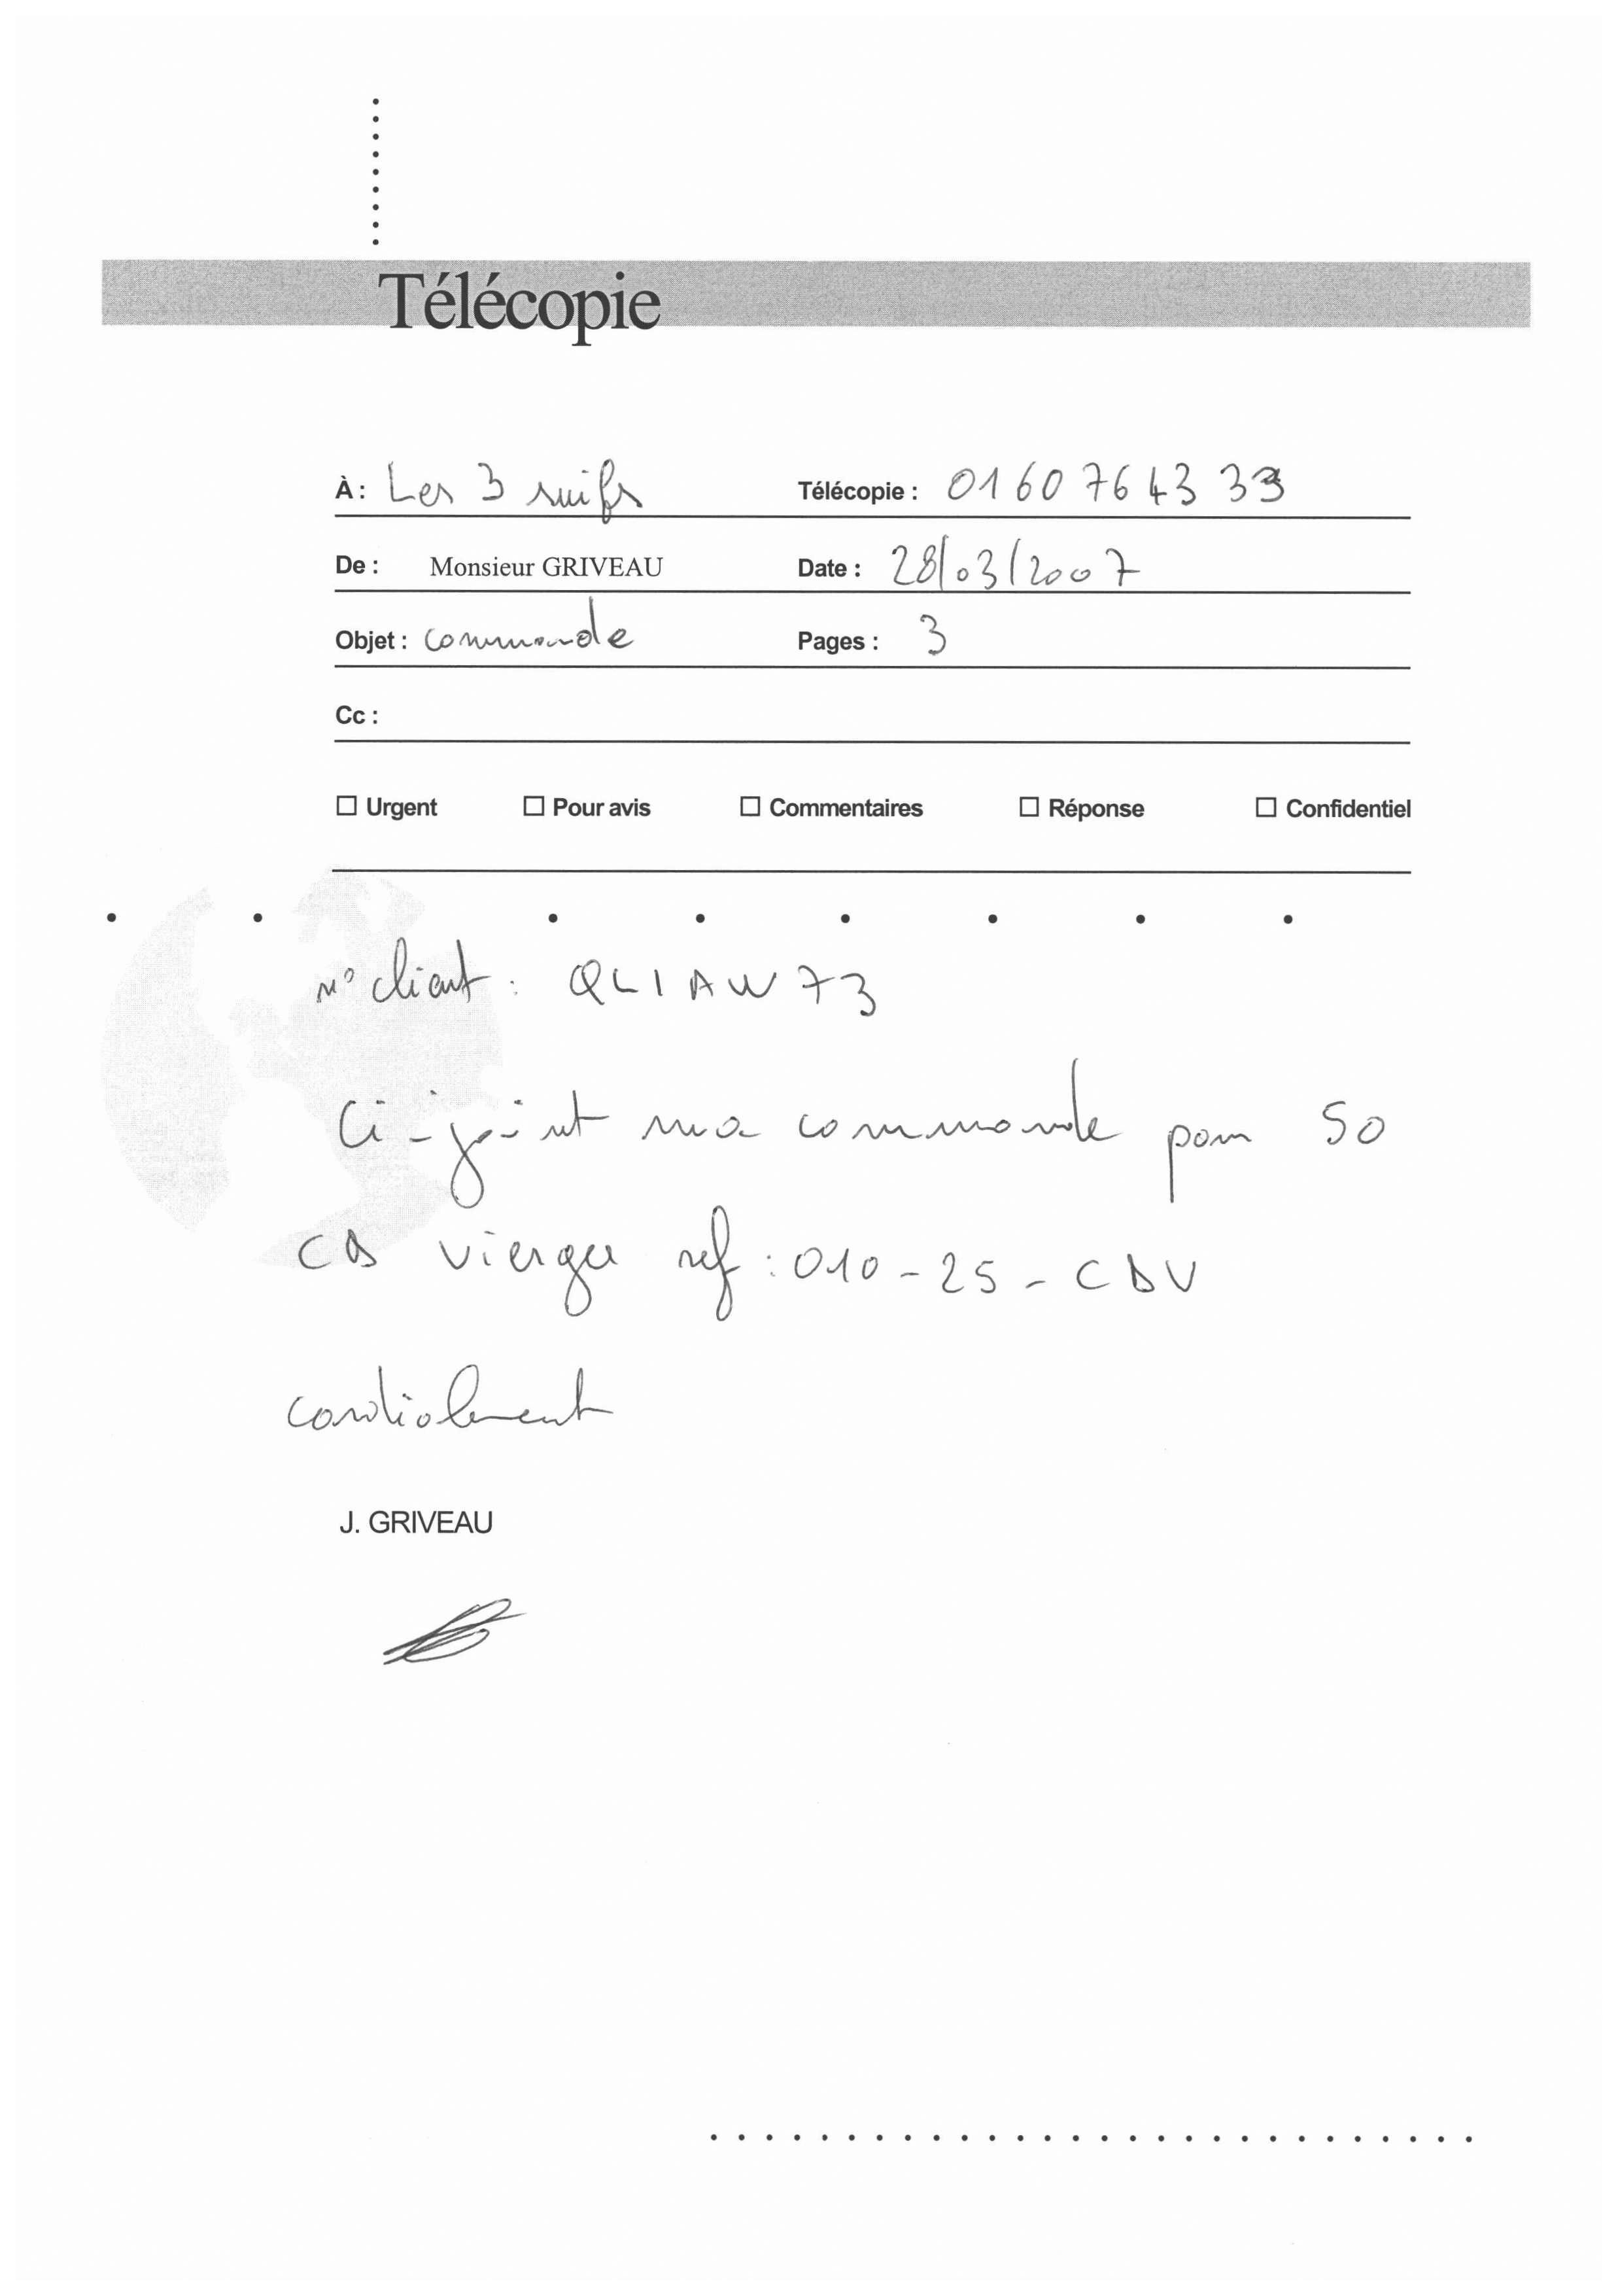 Télécopie
À : Les 3 suifs Télécopie : 01 60 76 43 33
De : Monsieur GRIVEAU Date : 28/03/2007
Objet : commande Pages : 3
Cc :
☐ Urgent ☐ Pour avis ☐ Commentaires ☐ Réponse ☐ Confidentiel
n° client : QLIAW73
Ci-joint ma commande pour 50
CD vierges ref : 010-25-CDV
cordialement
J. GRIVEAU